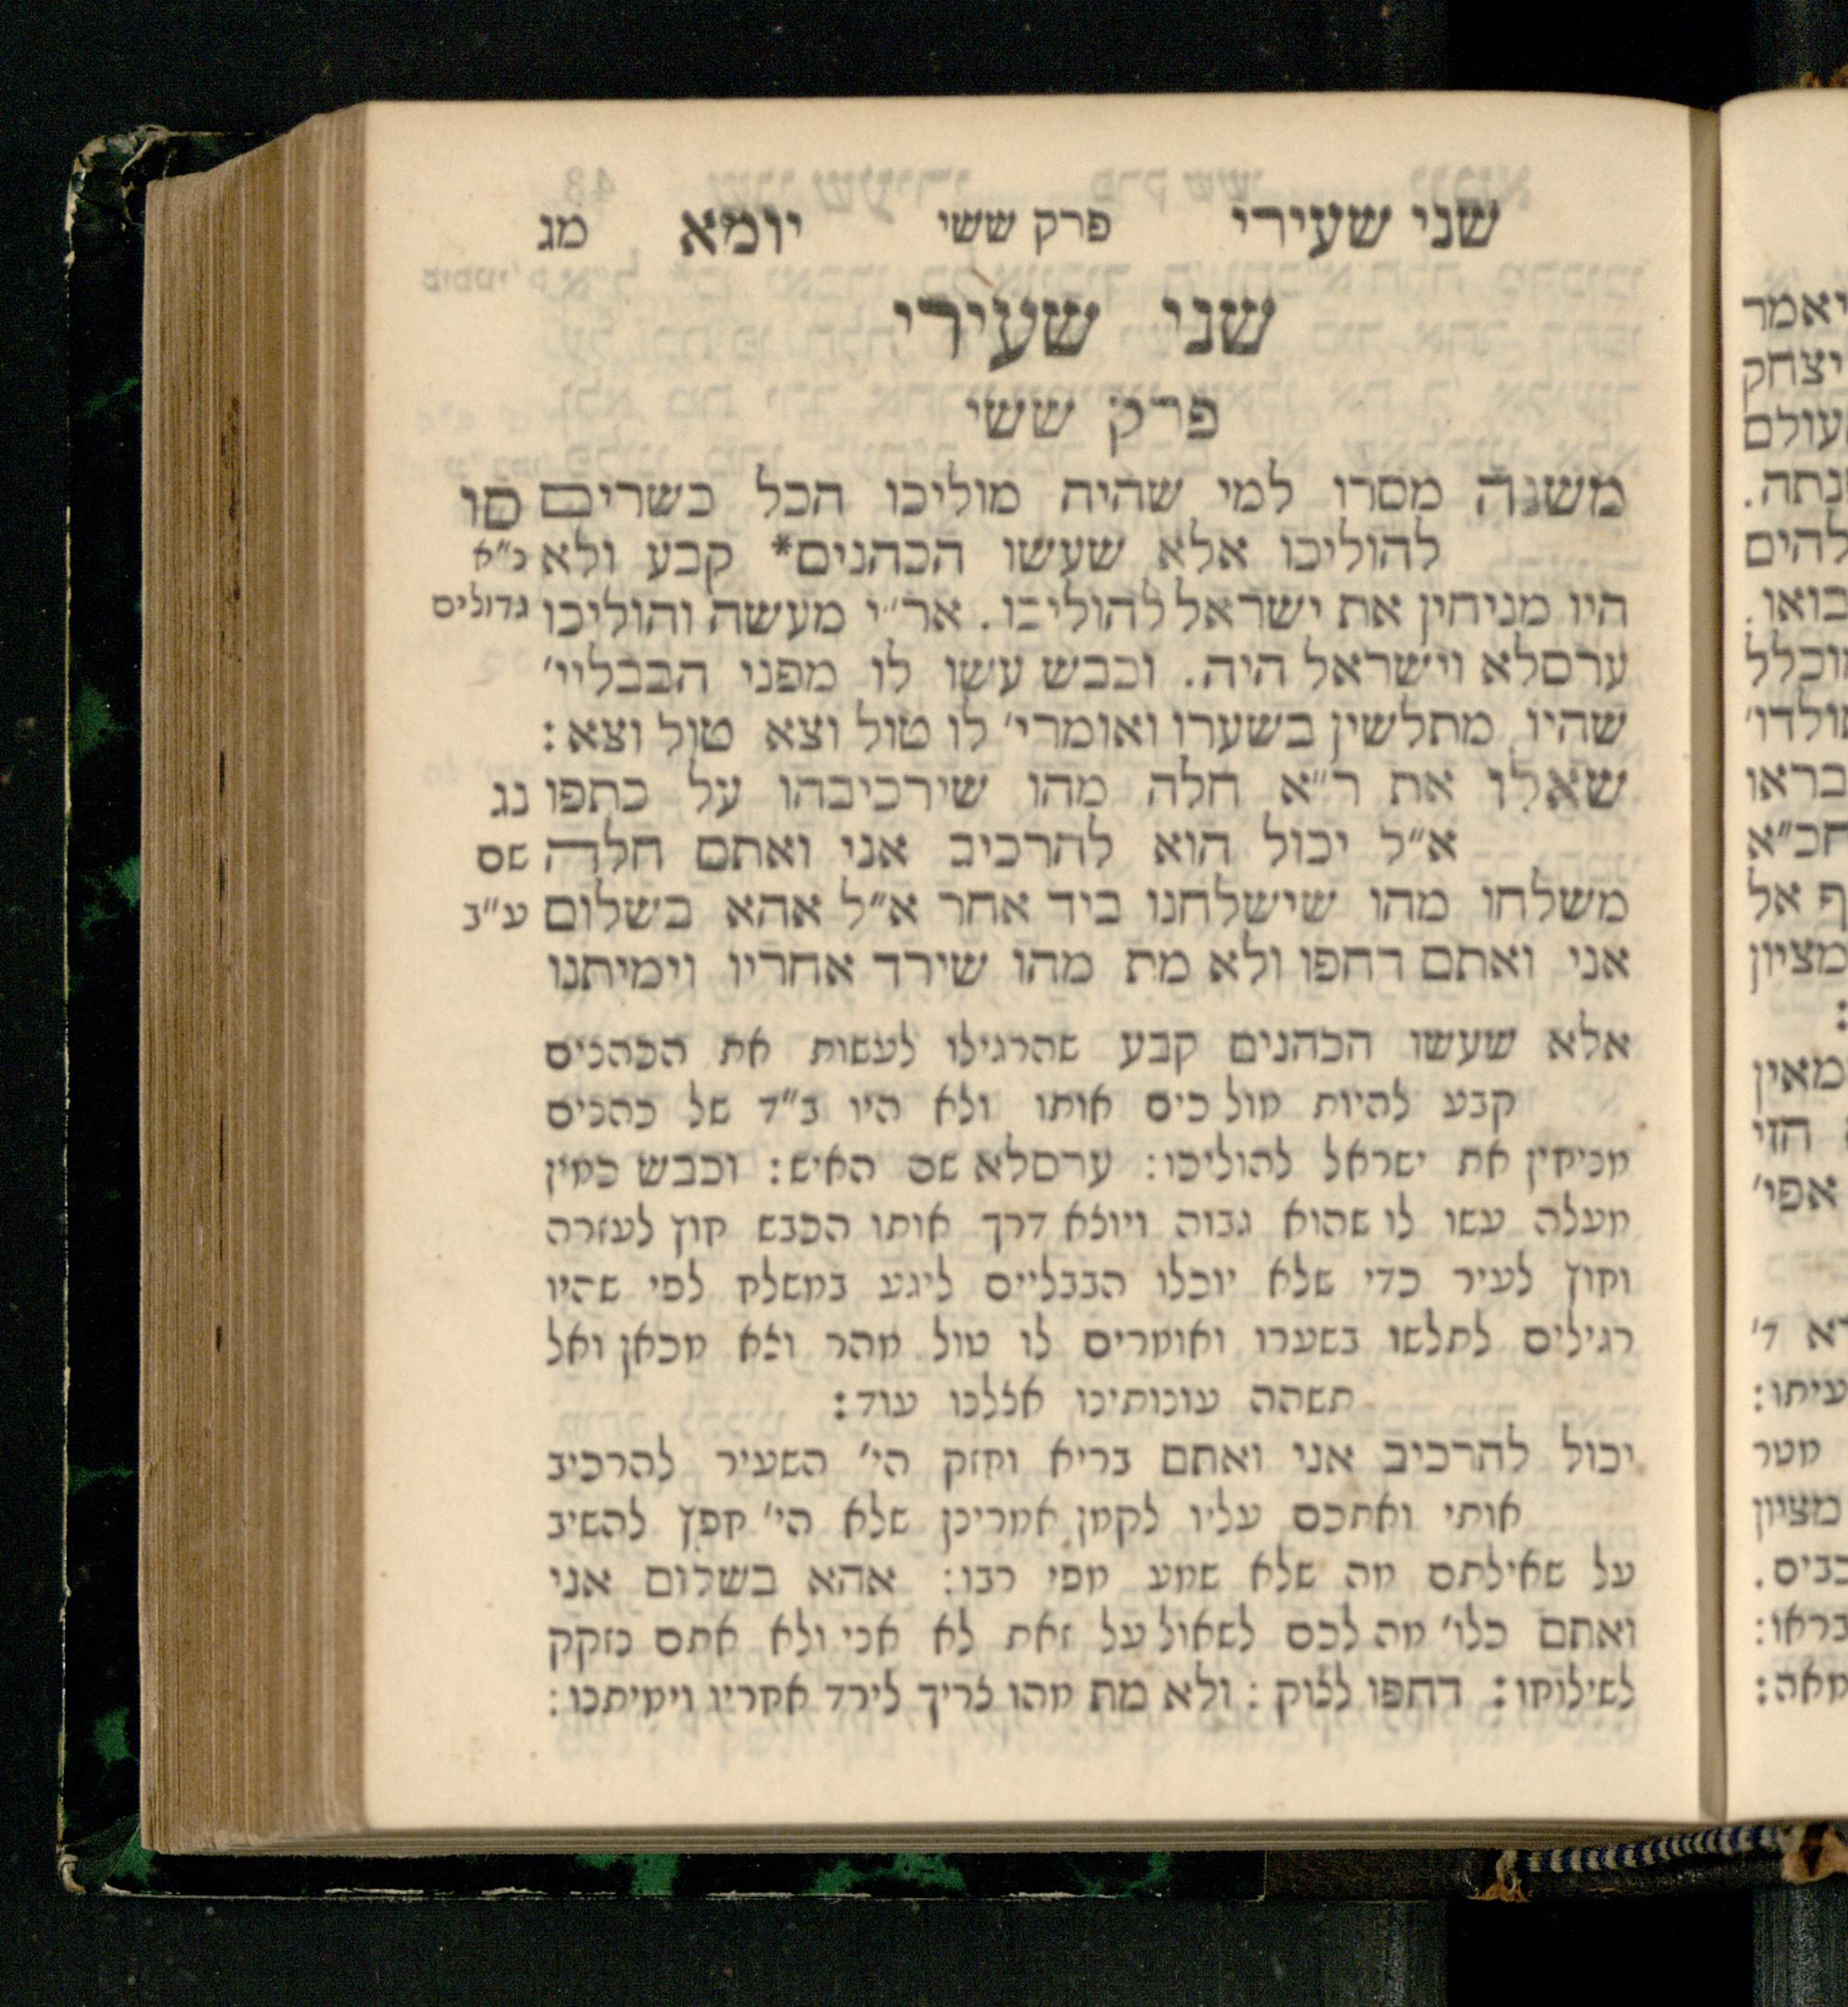 שני שעירי פרק ששי יומא מג
שני שעירי
פרק ששי
משנה מסרו למי שהיה מוליכו הכל כשרים סו
להוליכו אלא שעשו הכהנים* קבע ולא כ״א
היו מניחין את ישראל להוליכו. אר״י מעשה והוליכו גדולים
ערסלא וישראל היה. וכבש עשו לו מפני הבבליי׳
שהיו מתלשין בשערו ואומרי׳ לו טול וצא טול וצא:
שאלו את ר״א חלה מהו שירכיבהו על כתפו נג
א״ל יכול הוא להרכיב אני ואתם חלה שם
משלחו מהו שישלחנו ביד אחר א״ל אהא בשלום ע״ב
אני ואתם דחפו ולא מת מהו שירד אחריו וימיתנו
אלא שעשו הכהנים קבע שהרגילו לעשות את הכהנים
קבע להיות מוליכים אותו ולא היו ב״ד של כהנים
מניחין את ישראל להוליכו: ערסלא שם האיש: וכבש כמין
מעלה עשו לו שהוא גבוה ויוצא דרך אותו הכבש חוץ לעזרה
וחוץ לעיר כדי שלא יוכלו הבבליים ליגע במשלח לפי שהיו
רגילים לתלשו בשערו ואומרים לו טול מהר וצא מכאן ואל
תשהה עונותינו אצלנו עוד:
יכול להרכיב אני ואתם בריא וחזק הי׳ השעיר להרכיב
אותי ואתכם עליו לקמן אמרינן שלא הי׳ חפץ להשיב
על שאילתם מה שלא שמע מפי רבו: אהא בשלום אני
ואתם כלו׳ מה לכם לשאול על זאת לא אני ולא אתם נזקק
לשילוחו: דחפו לצוק: ולא מת מהו צריך לירד אחריו וימיתנו:
יאמר
יצחק
עולם
נתה.
להים
בואו.
וכלל
ולדו׳
בראו
חכ״א
ף אל
מציון
:
מאין
הזי
אפי׳
רא ד׳
עיתו:
מטר
מציון
כבים.
בראו:
מאה: